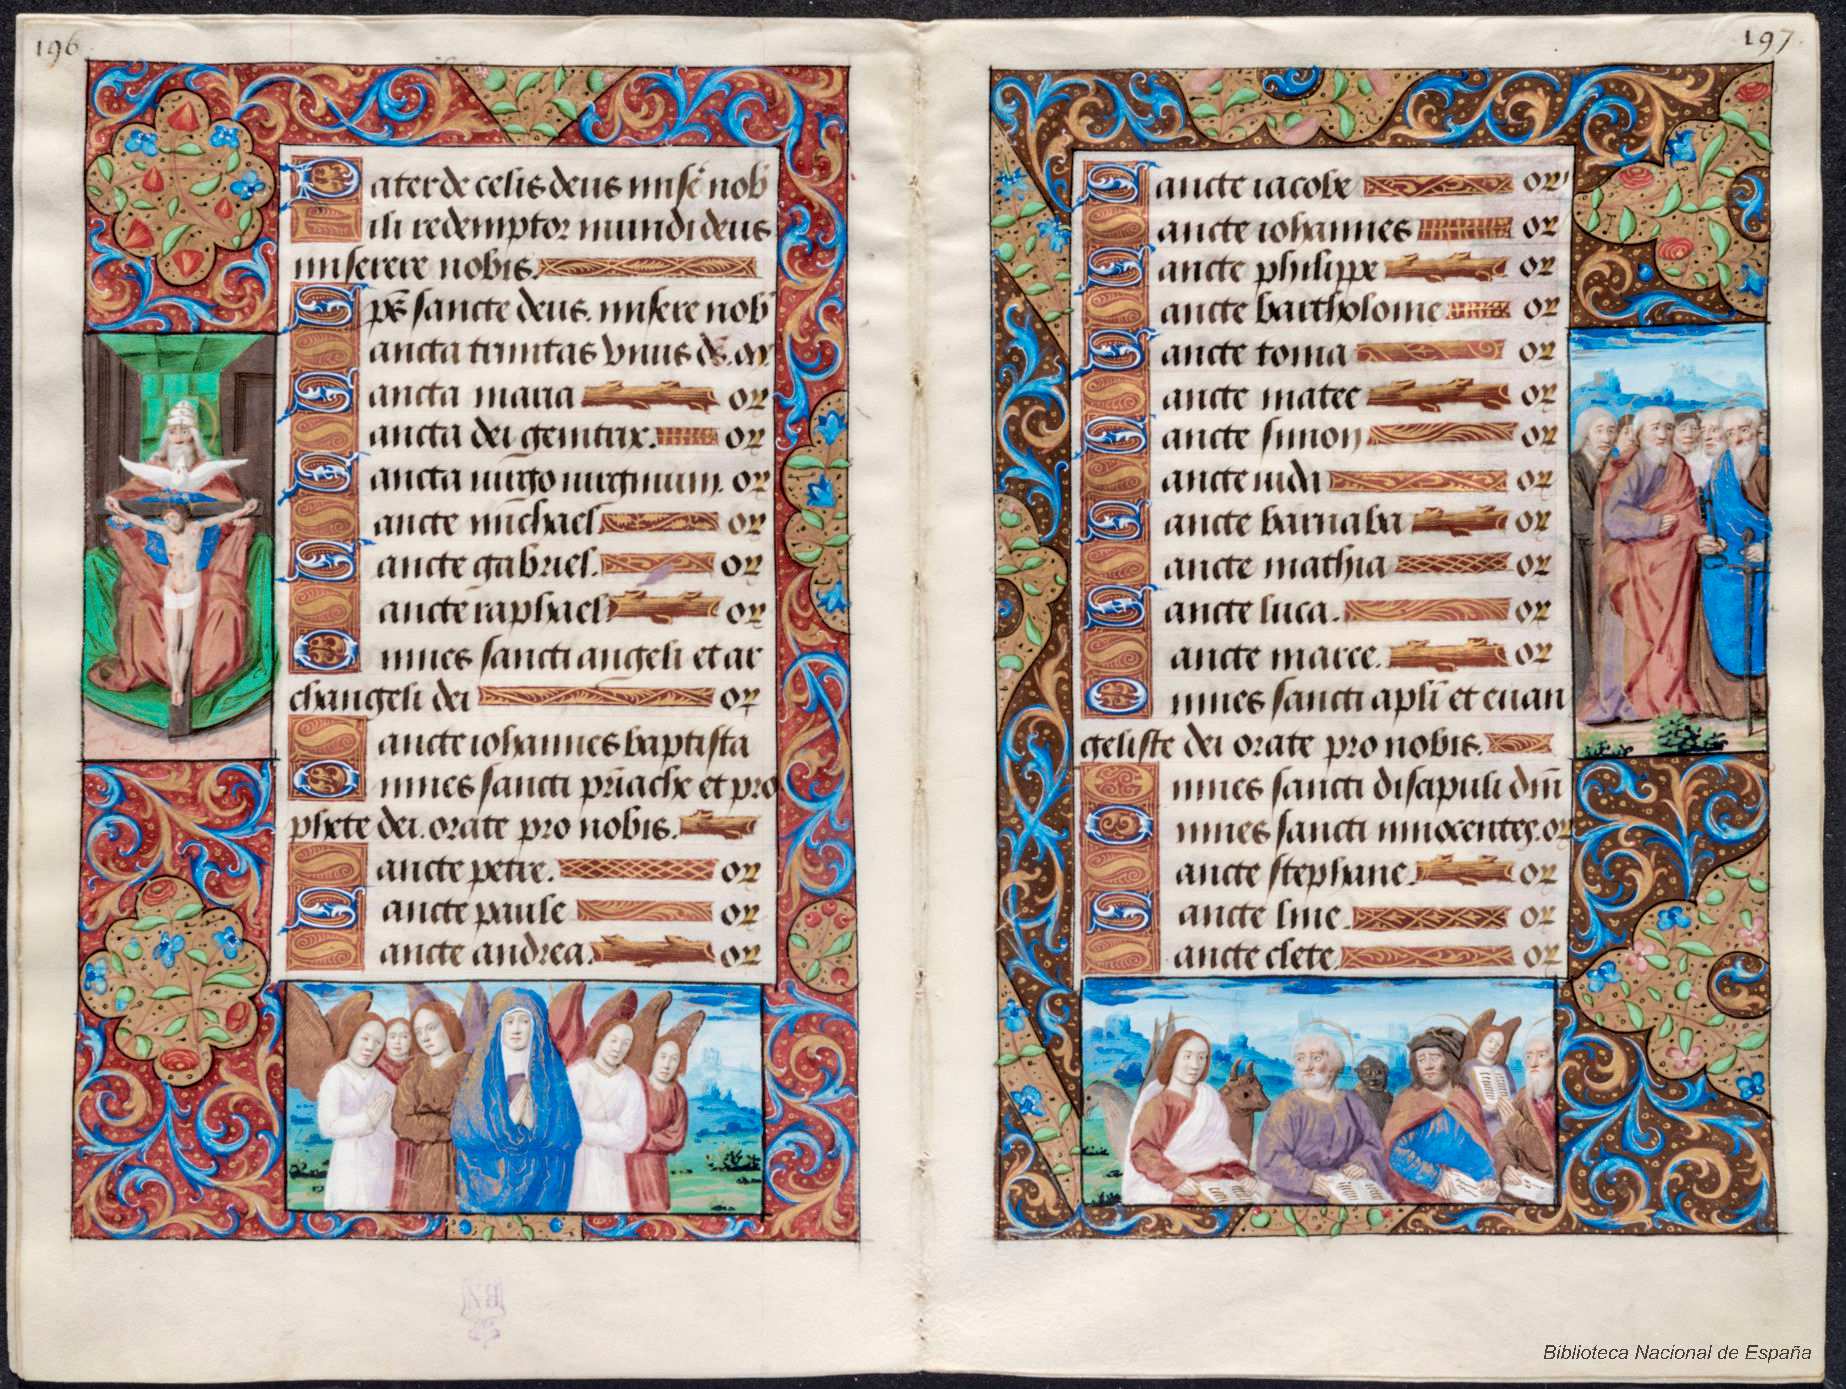 196
Pater de celis deus miser̃ nob
Fili redemptor mundi deus
miserere nobis.
Sp̃s sancte deus. misere nob
Sancta trinitas vnus ds̃. or
Sancta maria or
Sancta dei genitrix. or
Sancta virgo virginum. or
Sancte michael or
Sancte gabriel. or
Sancte raphael or
Omnes sancti angeli et ar
changeli dei or
Sancte iohannes baptista
Omnes sancti pr̃iarche et pro
phete dei. orate pro nobis.
Sancte petre. or
Sancte paule or
Sancte andrea. or
197.
Sancte iacobe or
Sancte iohannes or
Sancte philippe or
Sancte bartholome or
Sancte toma or
Sancte matee or
Sancte simon or
Sancte iuda or
Sancte barnaba or
Sancte mathia or
Sancte luca. or
Sancte marce. or
Omnes sancti apl̃i et euan
geliste dei orate pro nobis.
Omnes sancti discipuli dñi
Omnes sancti innocentes. or
Sancte stephane. or
Sancte line. or
Sancte clete. or
Biblioteca Nacional de España